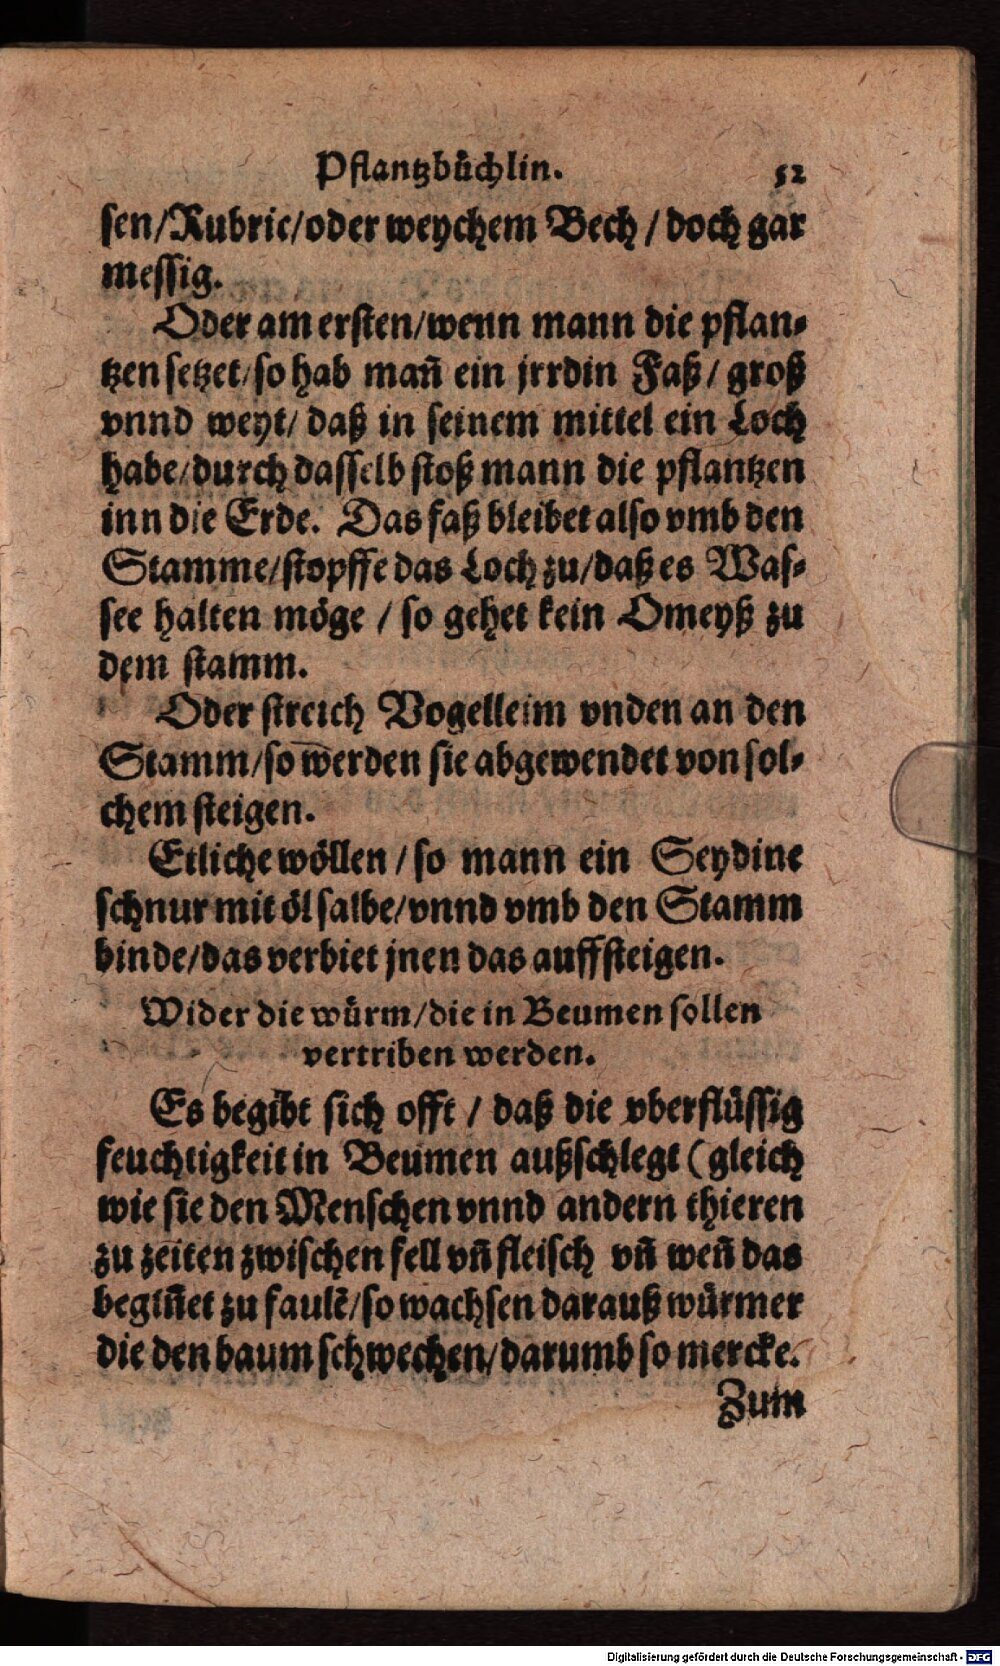 Pflantzbüchlin. 52
sen/Rubric/oder weychem Bech / doch gar
messig.
Oder am ersten/wenn mann die pflan⸗
tzen setzet/so hab mañ ein jrrdin Faß/ groß
vnnd weyt/ daß in seinem mittel ein Loch
habe/durch dasselb stoß mann die pflantzen
inn die Erde. Das faß bleibet also vmb den
Stamme/stopffe das Loch zu/daß es Was⸗
see halten möge / so gehet kein Omeyß zu
dem stamm.
Oder streich Vogelleim vnden an den
Stamm/so werden sie abgewendet von sol⸗
chem steigen.
Etliche wöllen / so mann ein Seydine
schnur mit öl salbe/vnnd vmb den Stamm
binde/das verbiet jnen das auffsteigen.
Wider die würm/die in Beumen sollen
vertriben werden.
Es begibt sich offt / daß die vberflüssig
feuchtigkeit in Beumen außschlegt (gleich
wie sie den Menschen vnnd andern thieren
zu zeiten zwischen fell vñ fleisch vñ weñ das
begiñet zu faulẽ/so wachsen darauß würmer
die den baum schwechen/darumb so mercke.
Zum
Digitalisierung gefördert durch die Deutsche Forschungsgemeinschaft - DFG